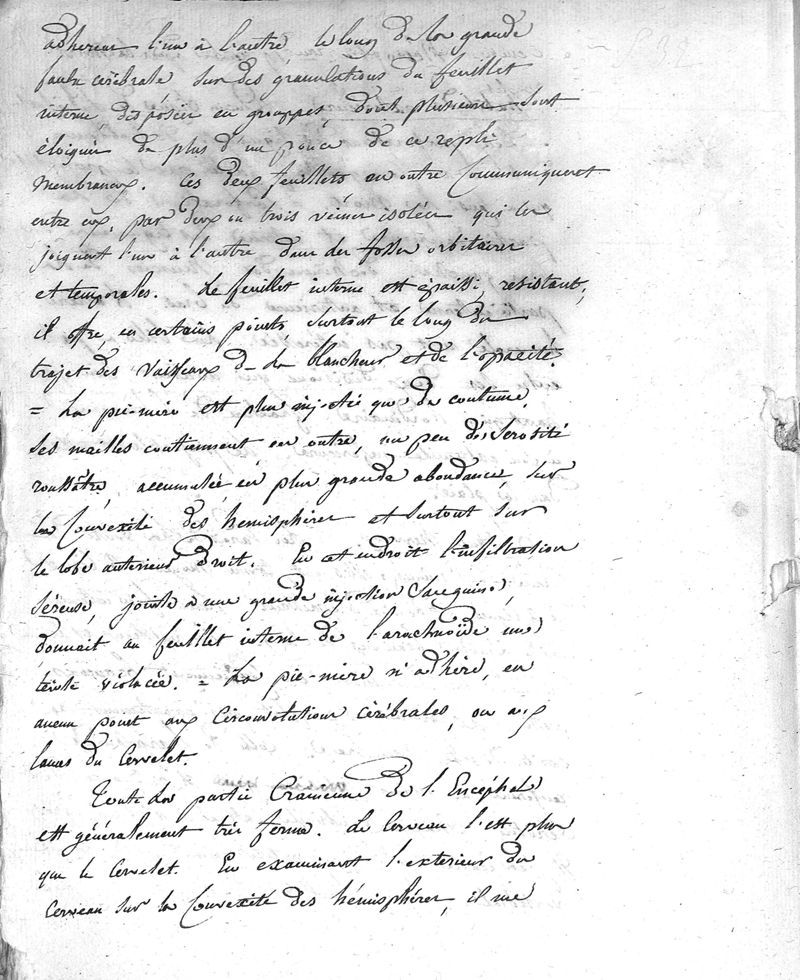 adhèrent l'un à l'autre, le long de la grande
faulx cérébrale sur des granulations du feuillet
interne, disposées en grouppes, dont plusieurs sont
éloignés de plus d'un pouce de ce repli
membraneux. Ces deux feuillets, en outre communiquent
entre eux, par deux ou trois veines isolées qui les
joignent l'un à l'autre dans les fosses orbitaires
et temporales. Le feuillet interne est épaissi, resistant;
il offre, en certains points, surtout le long du
trajet des vaisseaux de la blancheur et de l'opacité.
= La pie-mère est plus injectée que de coutume.
Ses mailles contiennent en outre, un peu de sérosité
roussâtre, accumulée en plus grande abondance, sur
la convexité des hémisphères et surtout sur
le lobe antérieur droit. En cet endroit l'infiltration
séreuse, jointe à une grande injection sanguine,
donnait au feuillet interne de l'arachnoïde une
teinte violacée. = La pie-mère n'adhère, en
aucun point aux circonvolutions cérébrales, ou aux
lames du cervelet.
Toute la partie Cranienne de l'Encéphale
est généralement très ferme. Le cerveau l'est plus
que le cervelet. En examinant l'exterieur du
cerveau sur la convexité des hémisphères, il me